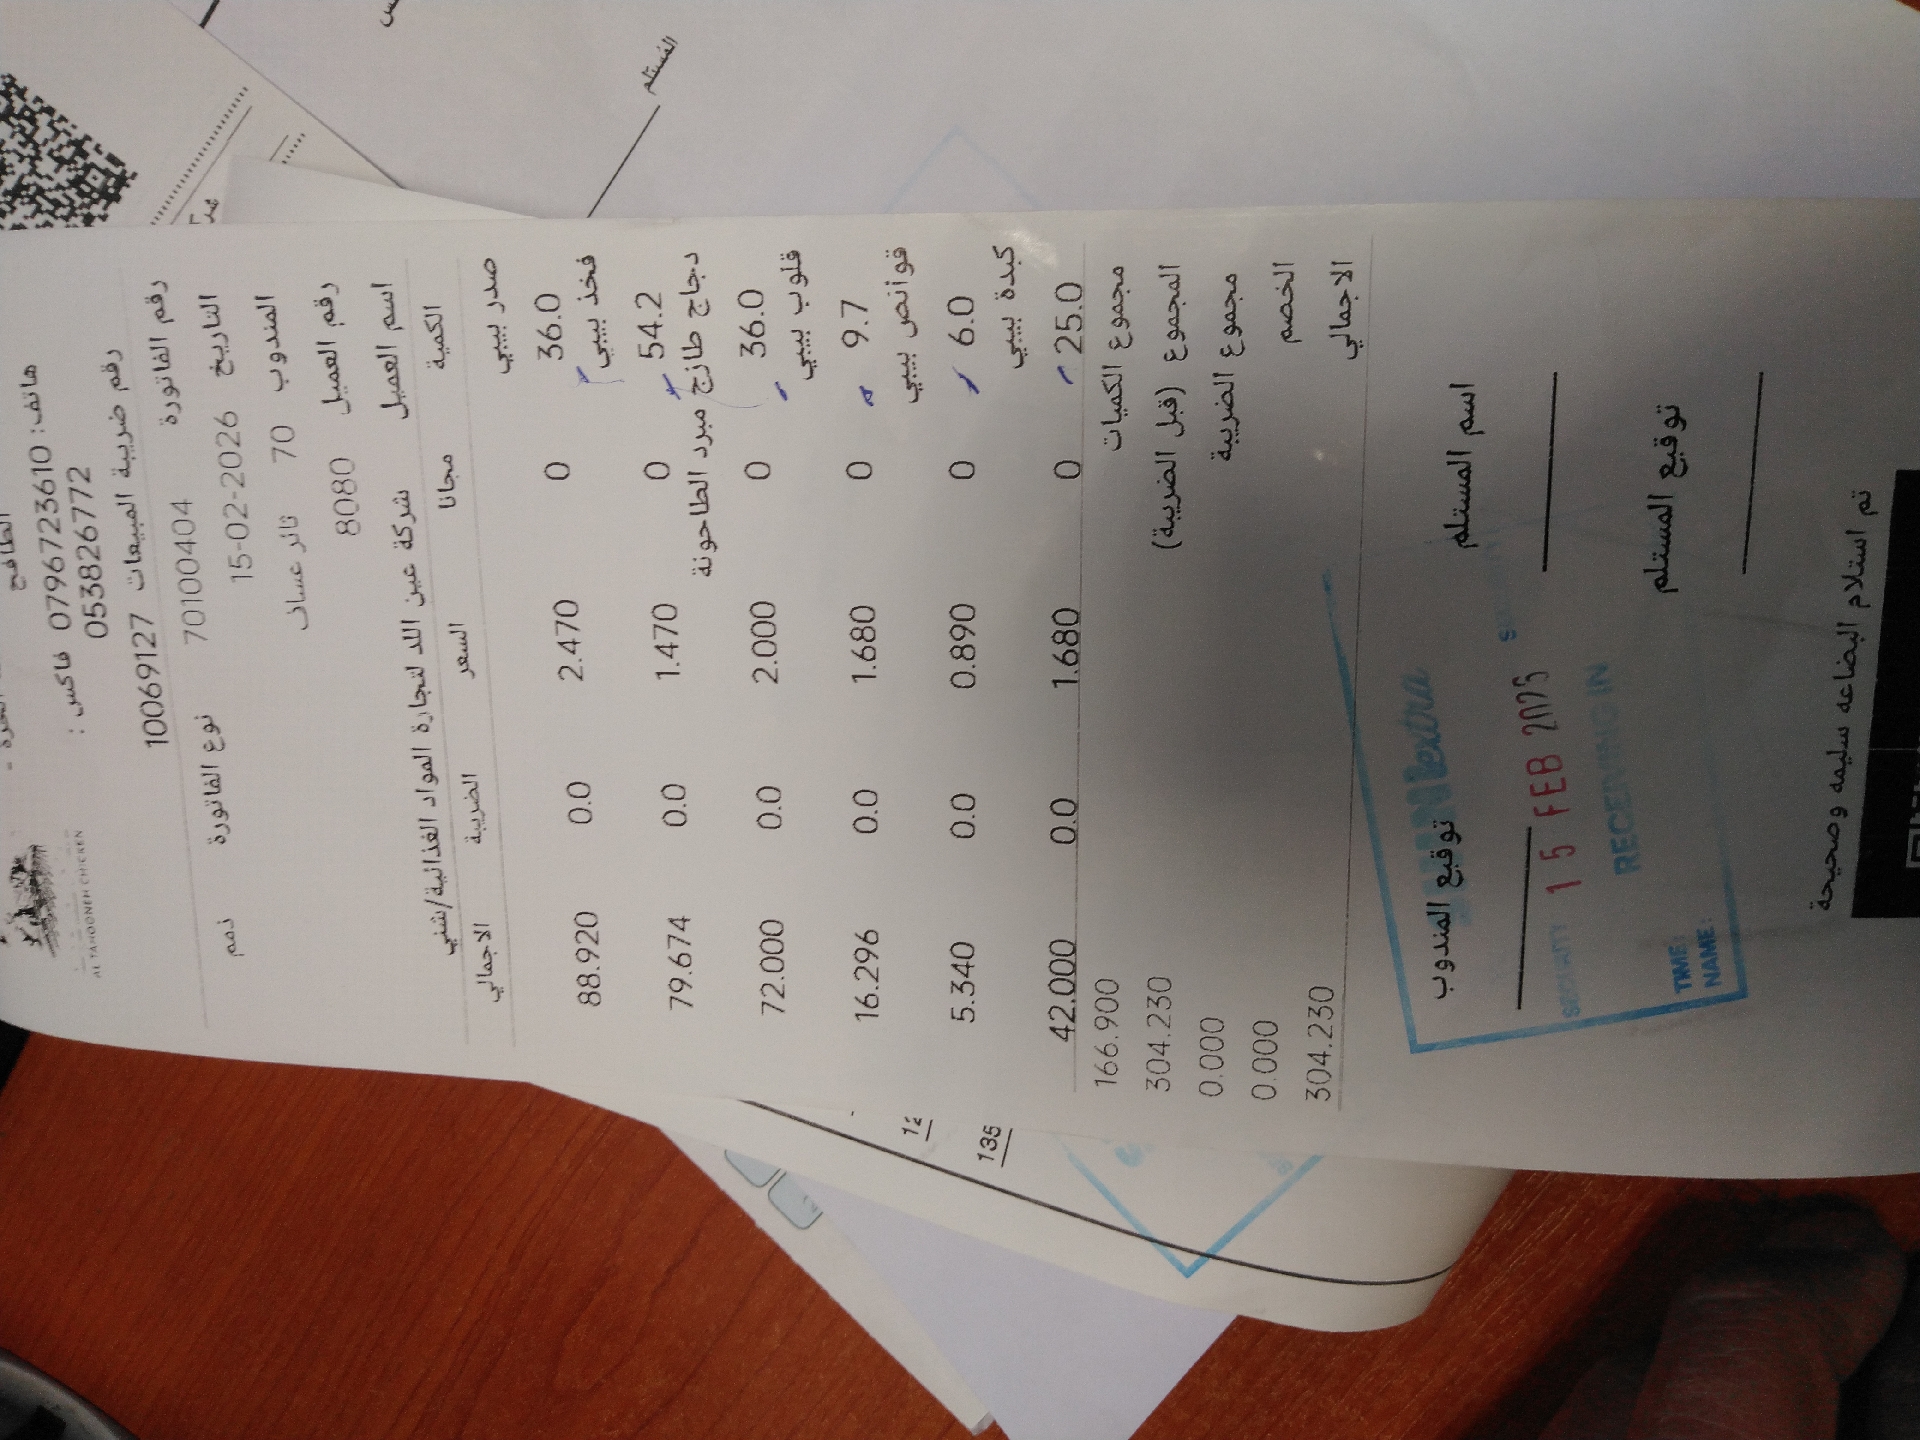 هاتف: 0796723610 فاكس :
0538826772
رقم ضريبة المبيعات 10069127
AL TAHOONEH CHICKEN
رقم الفاتورة 70100404 نوع الفاتورة ذمم
التاريخ 15-02-2026
المندوب 70 ثائر عساف
رقم العميل 8080
اسم العميل شركة عين اللد لتجارة المواد الغذائية/شني
الكمية مجانا السعر الضريبة الاجمالي
صدر بيبي
36.0 0 2.470 0.0 88.920
فخذ بيبي
54.2 0 1.470 0.0 79.674
دجاج طازج مبرد الطاحونة
36.0 0 2.000 0.0 72.000
قلوب بيبي
9.7 0 1.680 0.0 16.296
قوانص بيبي
6.0 0 0.890 0.0 5.340
كبدة بيبي
25.0 0 1.680 0.0 42.000
مجموع الكميات 166.900
المجموع (قبل الضريبة) 304.230
مجموع الضريبة 0.000
الخصم 0.000
الاجمالي 304.230
اسم المستلم توقيع المندوب
extra
15 FEB 2026
SECURITY
RECEIVING IN
TIME:
NAME:
توقيع المستلم
تم استلام البضاعه سليمه وصحيحة
المستلم
12
135